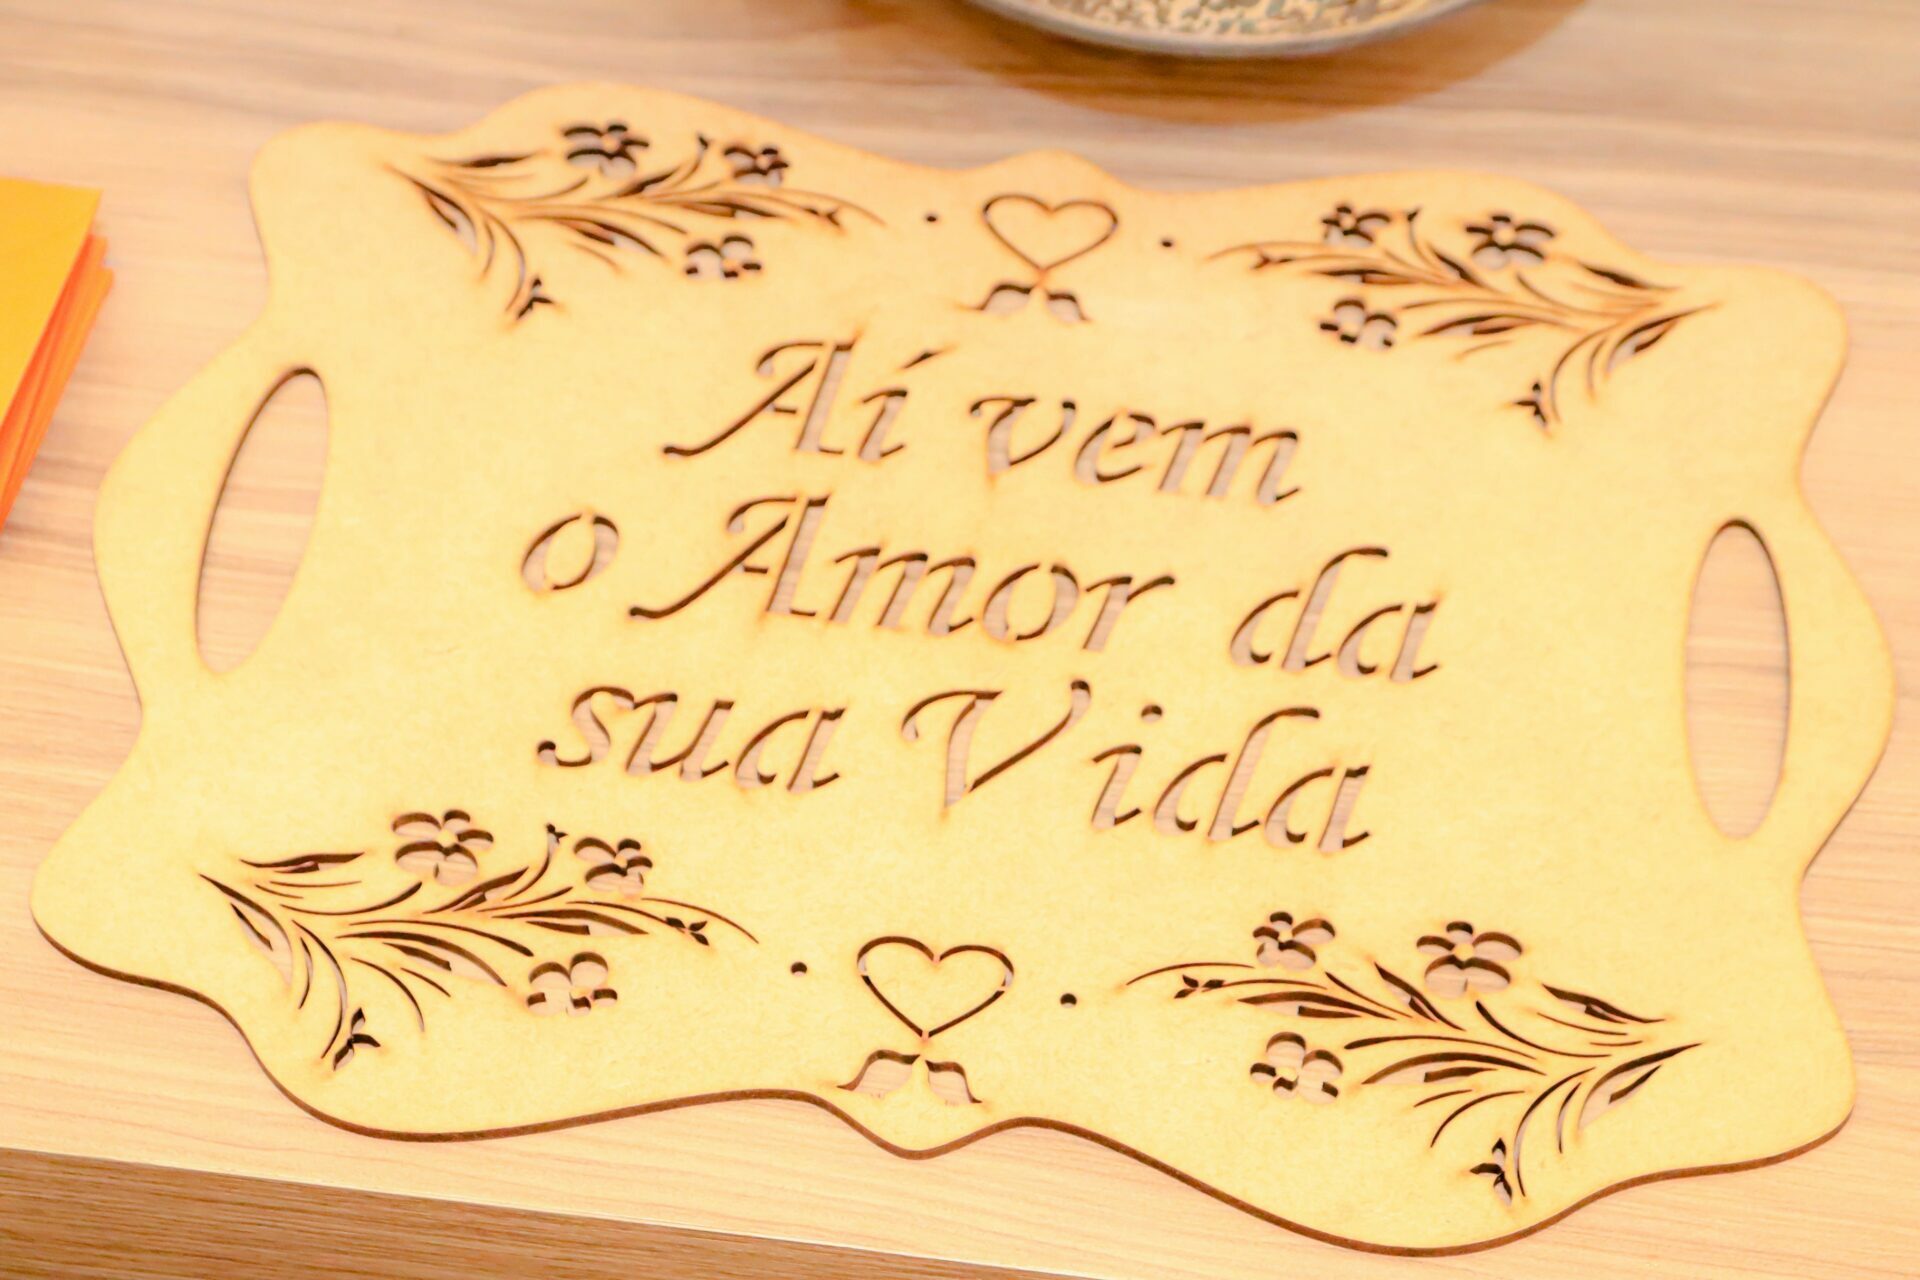 Aí vem
o Amor da
sua Vida